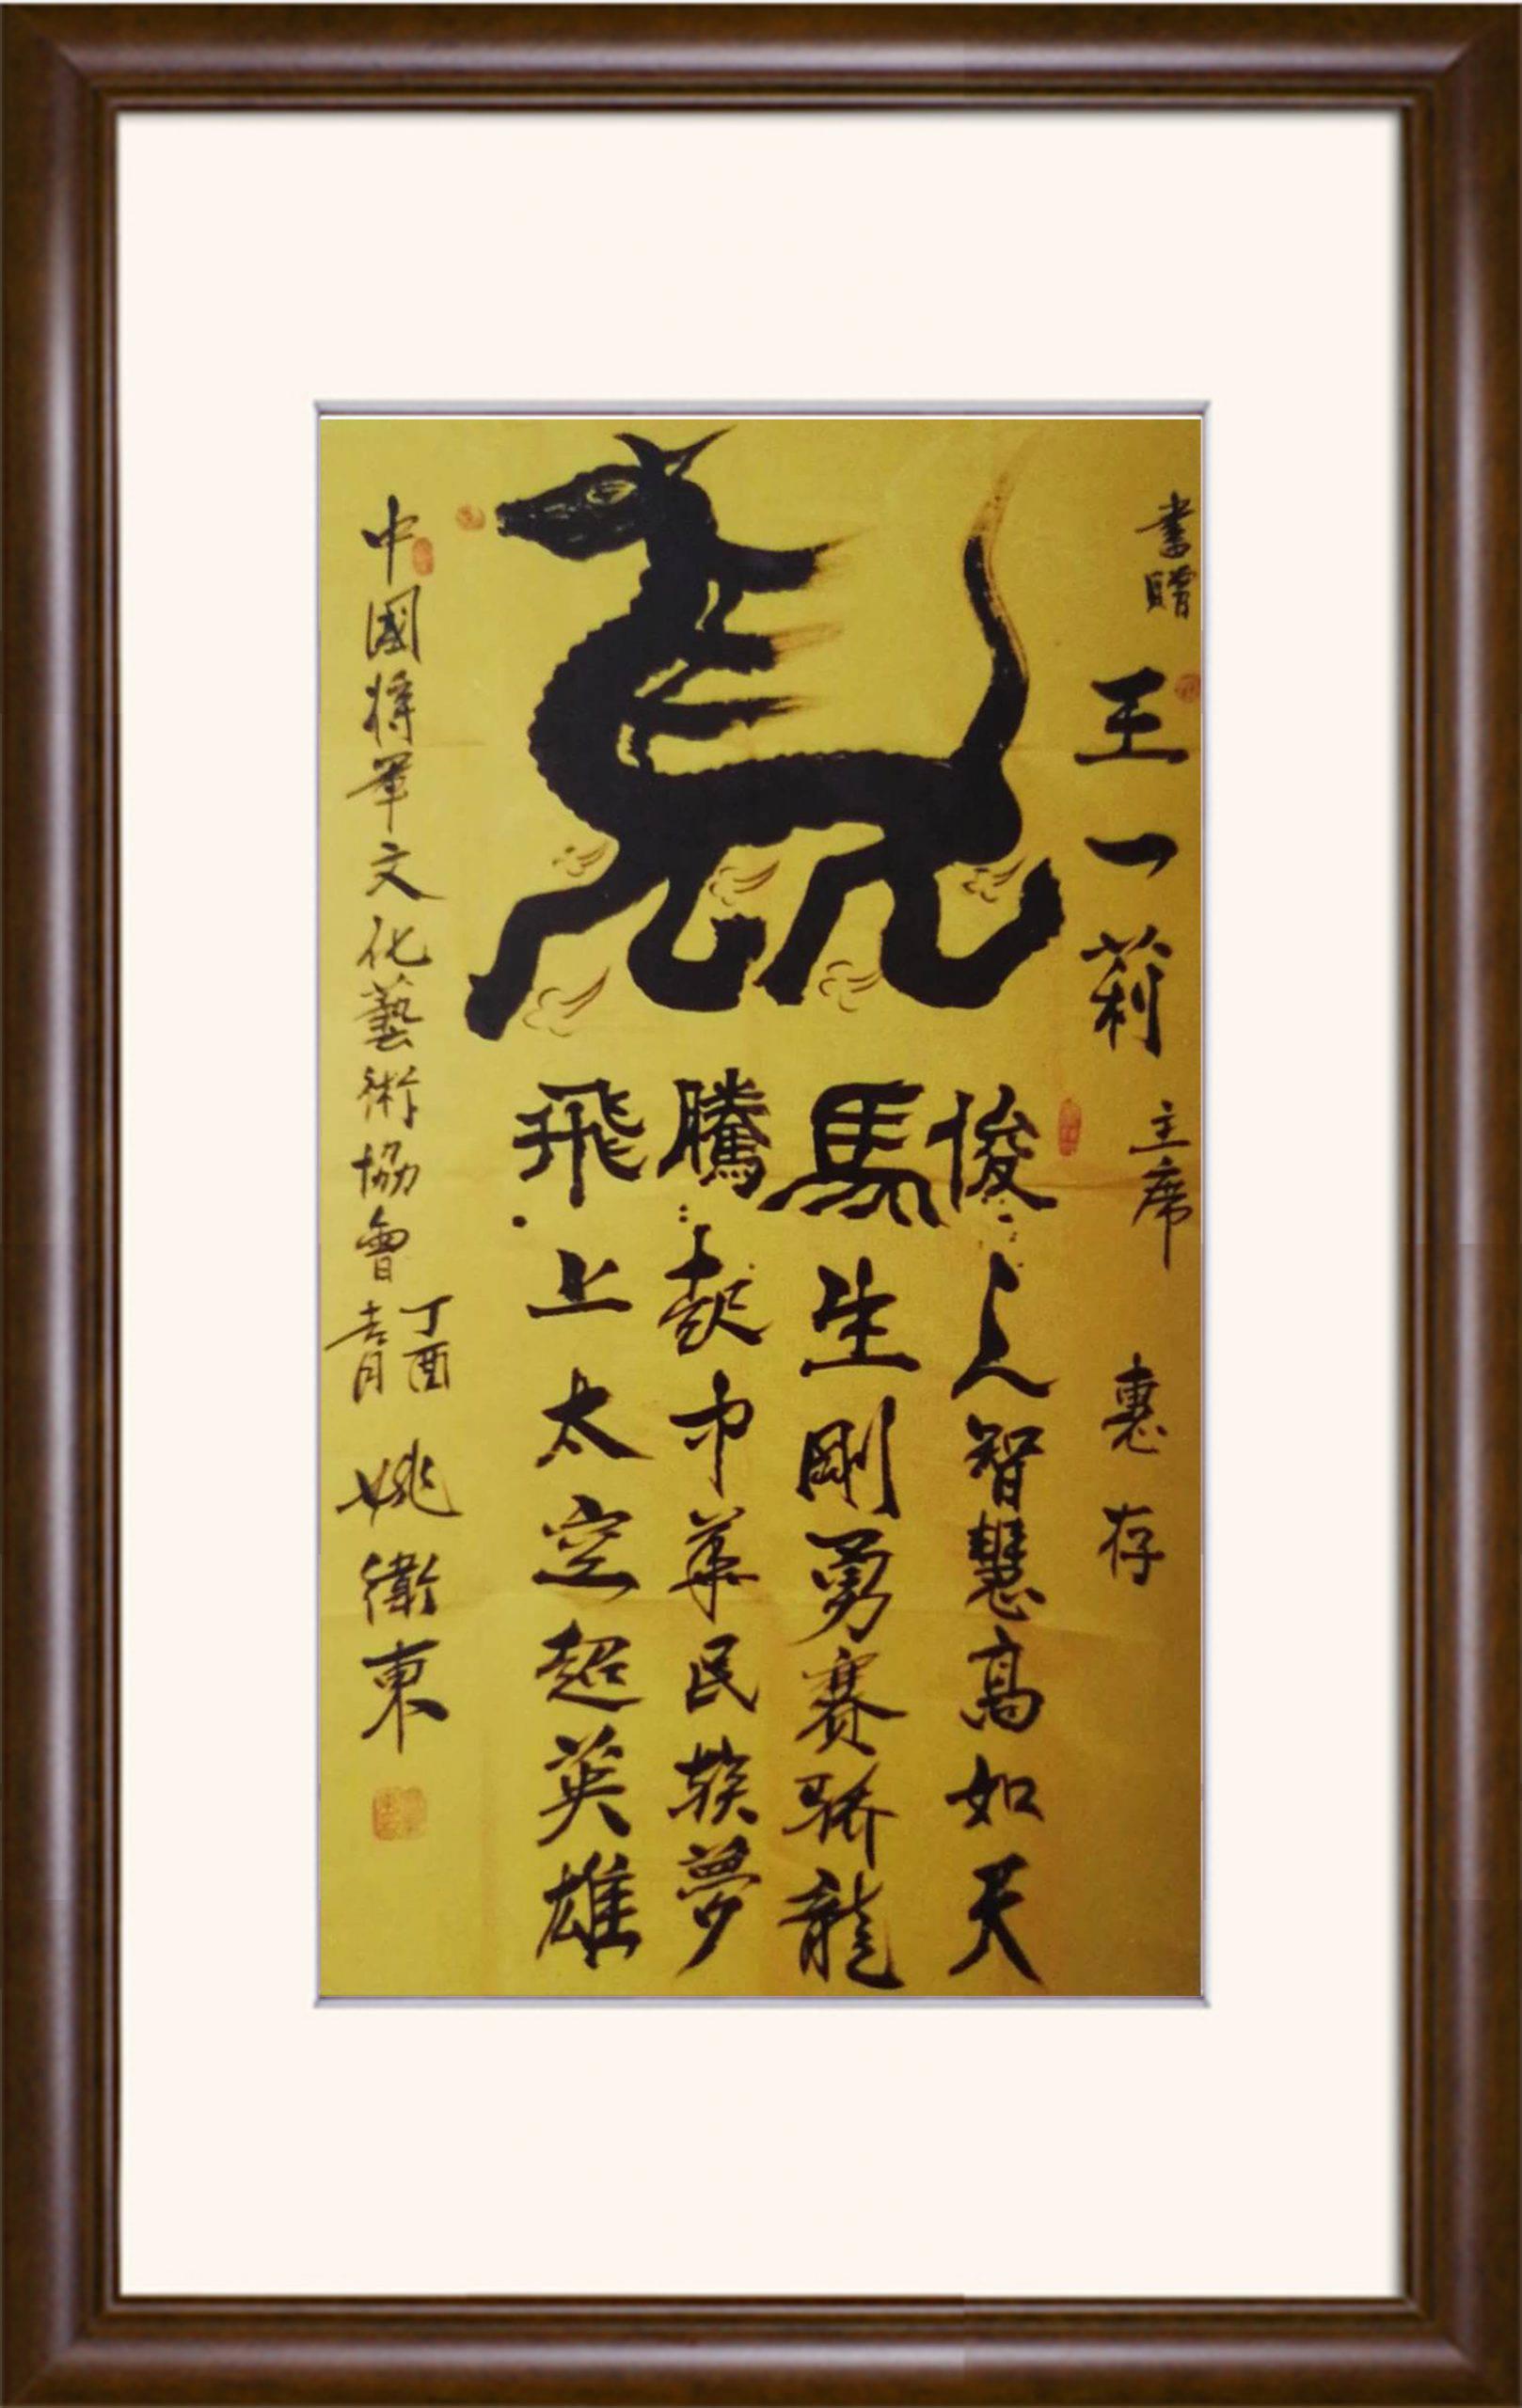 書贈 王一莉 主席 惠存
俊:人智慧高如天
馬生剛勇賽驕龍
騰:起中華民族夢
飛上太空超英雄
中國將軍文化藝術協會
丁酉
吉月
姚衛東